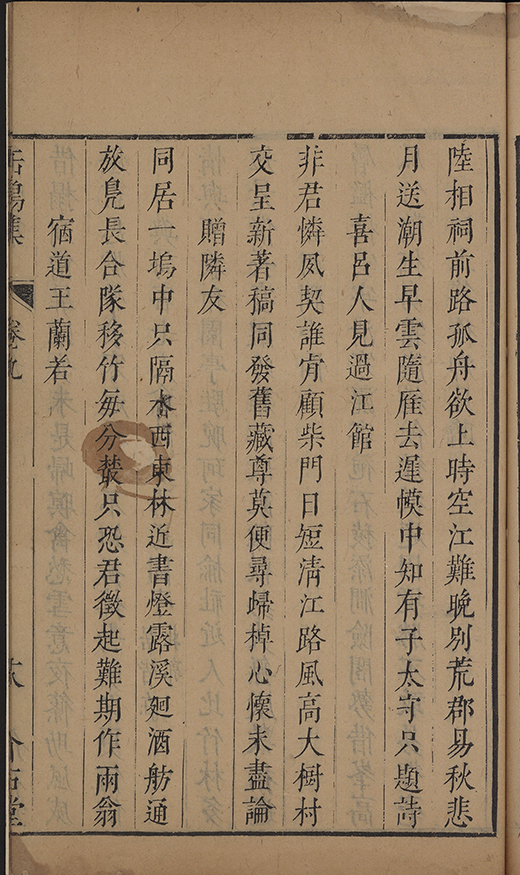 陸相祠前路孤舟欲上時空江難晚別荒郡易秋悲
月送潮生早雲隨雁去遲幙中知有子太守只題詩
喜呂人見過江館
非君憐夙契誰肯顧柴門日短清江路風高大樹村
交呈新著稿同發舊藏尊莫便尋歸棹心懷未盡論
贈隣友
同居一塢中只隔水西東林近書燈露溪廻酒舫通
放鳧長合隊移竹每分叢只恐君徵起難期作兩翁
宿道王蘭若
卷九
介石堂